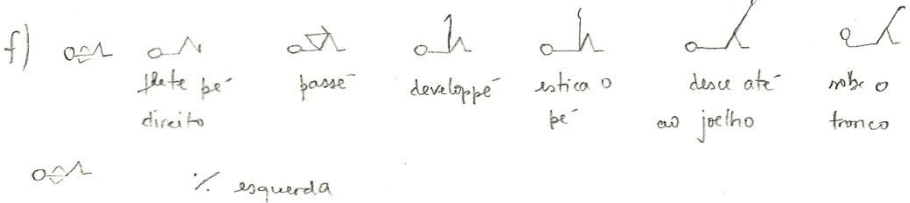 f)
flete pé direito
passé
developpé
estica o pé
desce até ao joelho
sobe o tronco
·/. esquerda